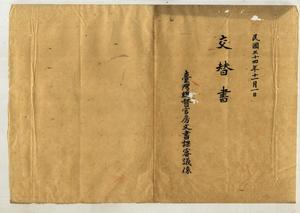 民國三十四年十一月一日
交替書
臺灣總督官房文書課審議係